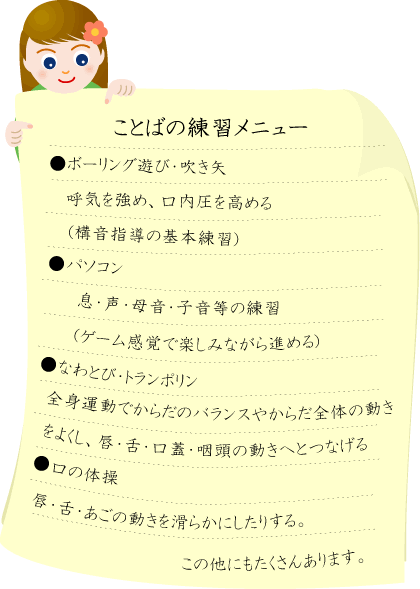 ことばの練習メニュー
●ボーリング遊び・吹き矢
呼気を強め、口内圧を高める
（構音指導の基本練習）
●パソコン
息・声・母音・子音等の練習
（ゲーム感覚で楽しみながら進める）
●なわとび・トランポリン
全身運動でからだのバランスやからだ全体の動き
をよくし、唇・舌・口蓋・咽頭の動きへとつなげる
●口の体操
唇・舌・あごの動きを滑らかにしたりする。
この他にもたくさんあります。